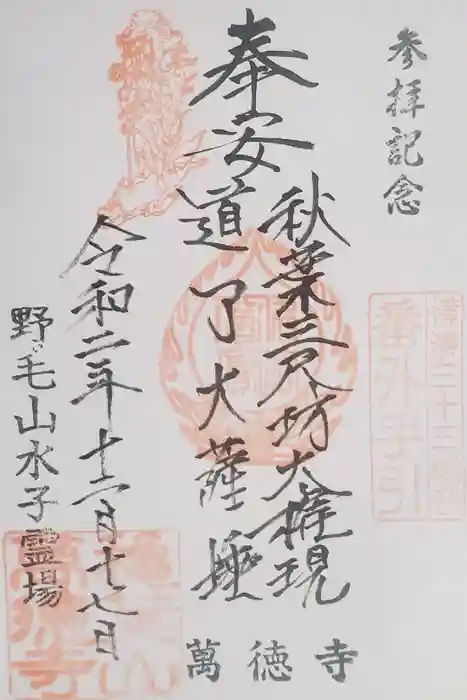 参拝記念
奉安
秋葉三尺坊大権現
道了大薩埵
令和二年十二月十七日
野毛山水子霊場
萬徳寺
番外手引